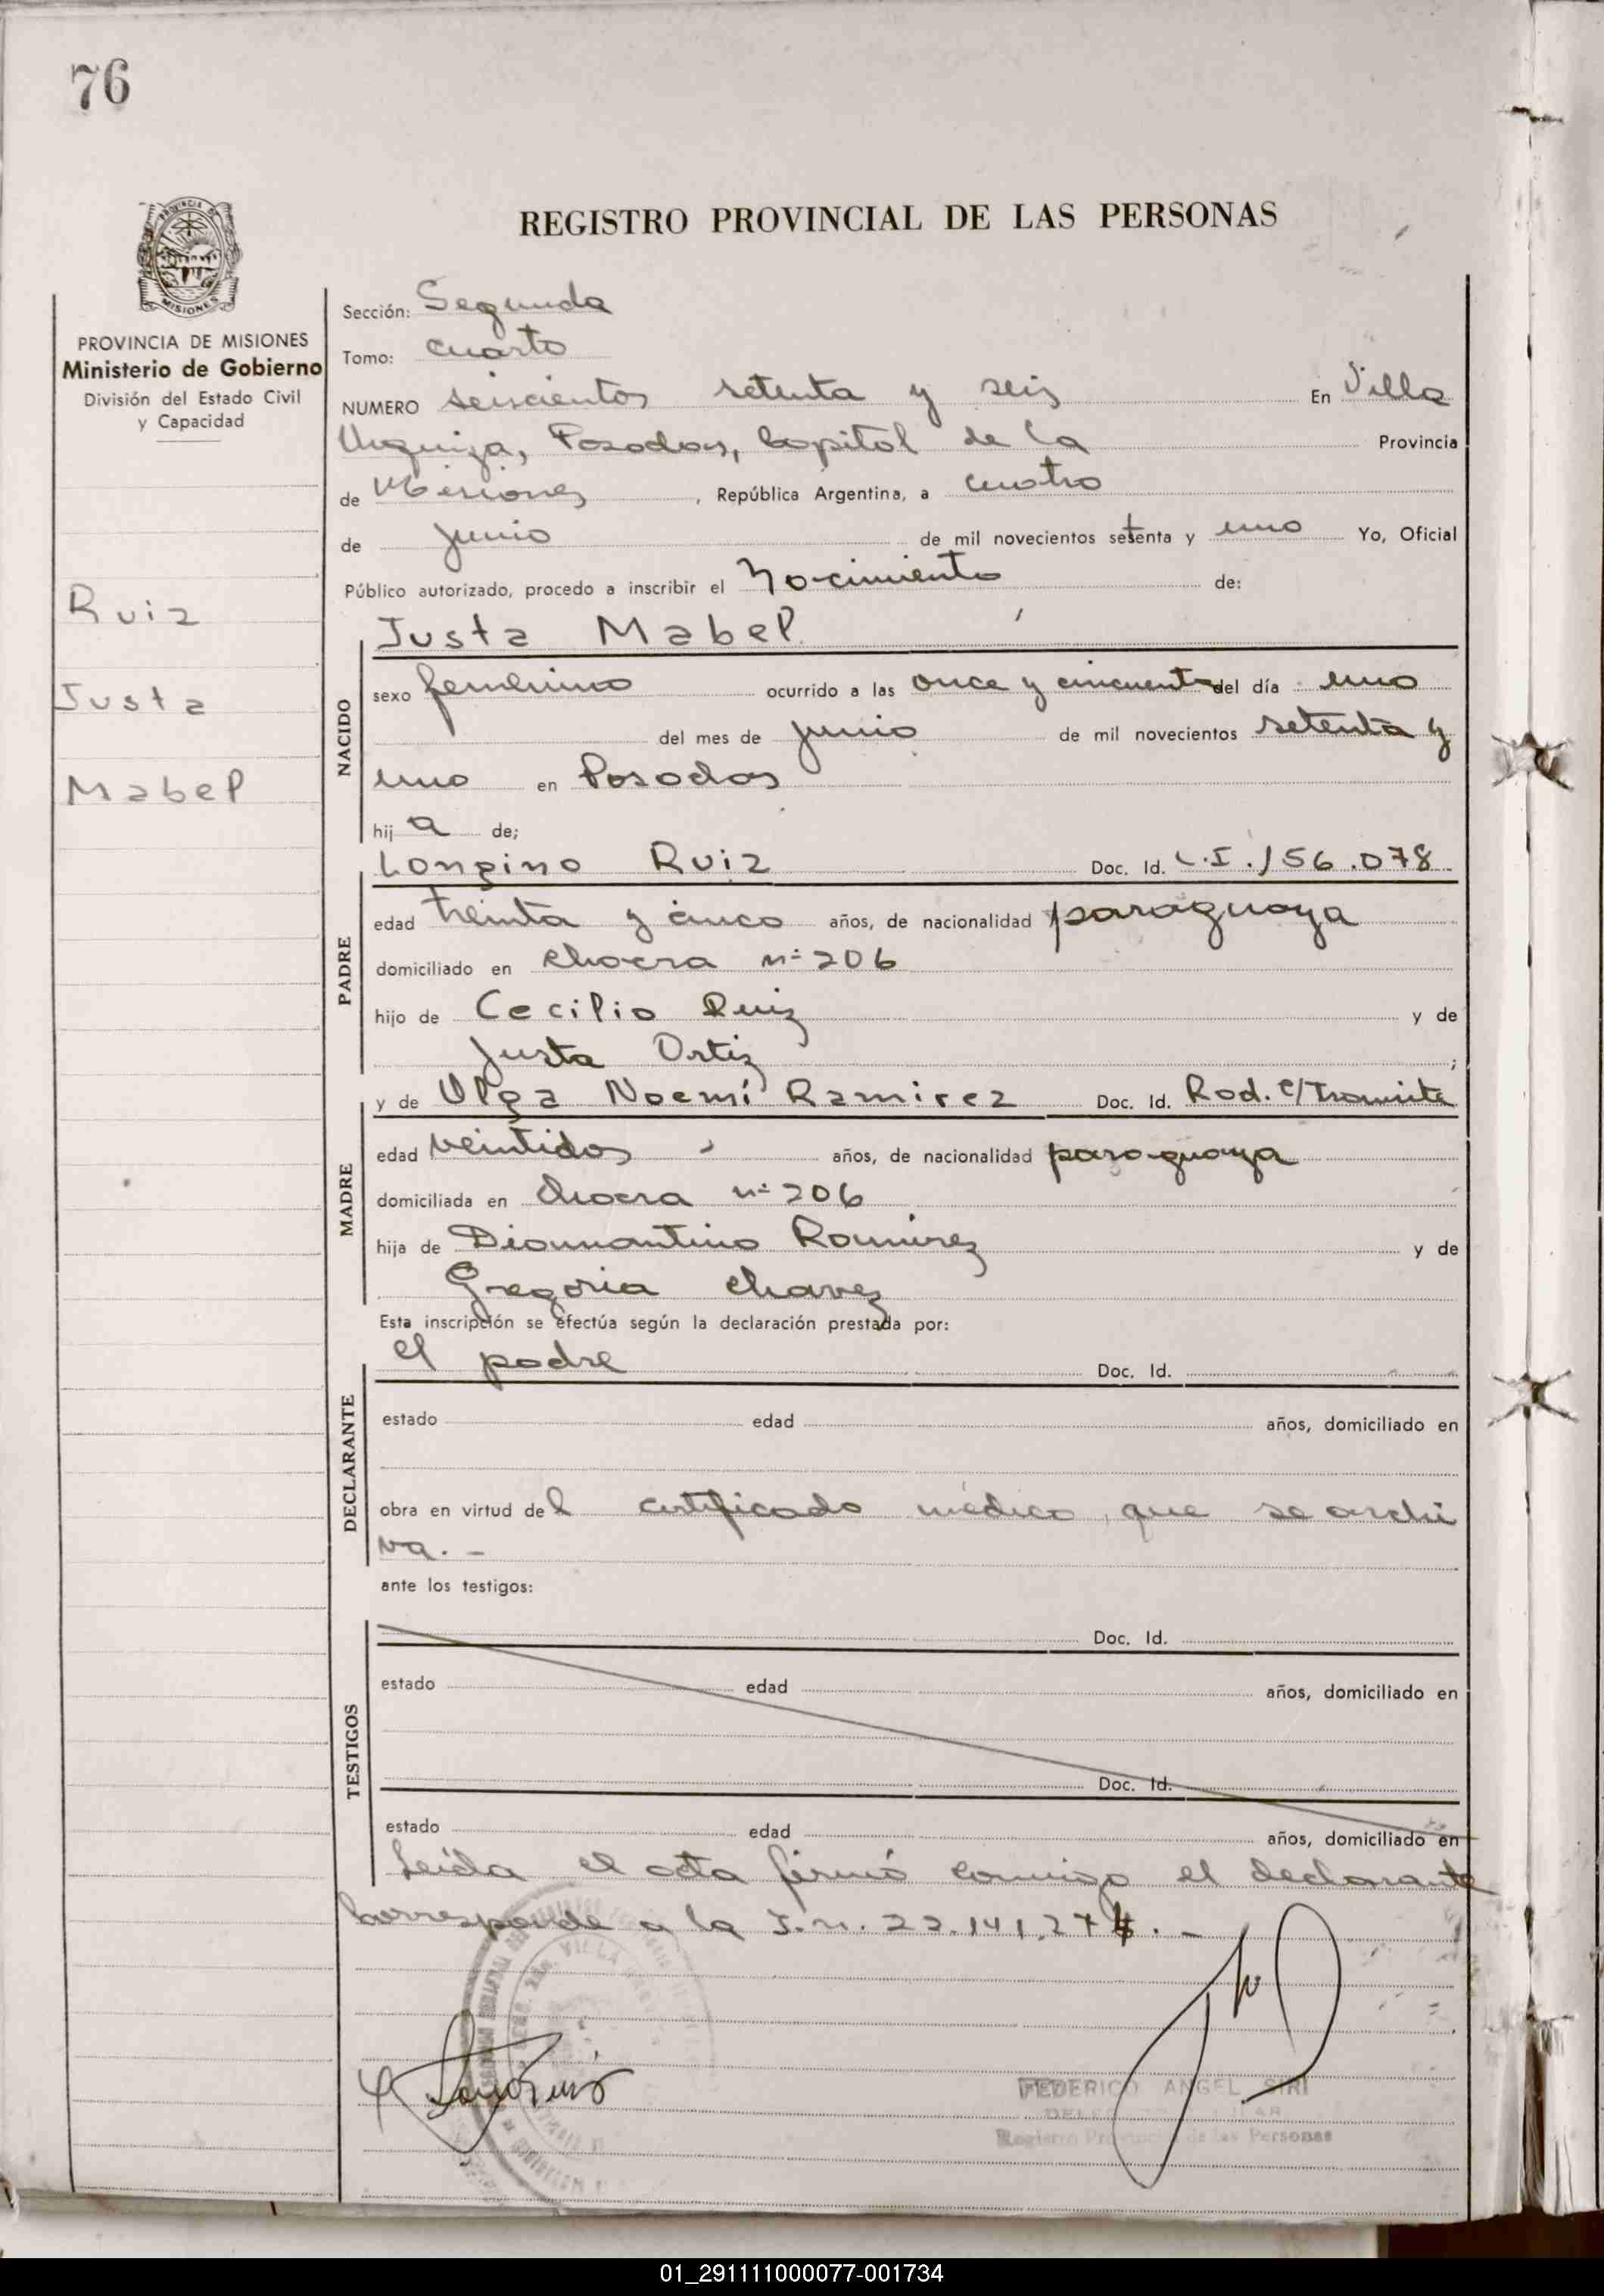 76
REGISTRO PROVINCIAL DE LAS PERSONAS
PROVINCIA DE
MISIONES
PROVINCIA DE MISIONES
Ministerio de Gobierno
División del Estado Civil
y Capacidad
Ruiz
Justa
Mabel
Sección: Segunda
Tomo: cuarto
NUMERO seiscientos setenta y seis En Villa
Urquiza, Posadas, Capital de la Provincia
de Misiones, República Argentina, a cuatro
de junio de mil novecientos setenta y uno Yo, Oficial
Público autorizado, procedo a inscribir el Nacimiento de:
Justa Mabel
NACIDO
sexo femenino ocurrido a las once y cincuenta del día uno
del mes de junio de mil novecientos setenta y
uno en Posadas
hija de;
Longino Ruiz Doc. Id. C.I. 156.078
PADRE
edad treinta y cinco años, de nacionalidad paraguaya
domiciliado en chacra nº 206
hijo de Cecilio Ruiz y de
Justa Ortiz;
y de Olga Noemí Ramirez Doc. Id. Rad. e/Tramite
MADRE
edad veintidos años, de nacionalidad paraguaya
domiciliada en chacra nº 206
hija de Diamantino Ramirez y de
Gregoria Chavez
Esta inscripción se efectúa según la declaración prestada por:
el padre Doc. Id.
DECLARANTE
estado edad años, domiciliado en
obra en virtud del certificado médico, que se archi
va. -
ante los testigos:
Doc. Id.
TESTIGOS
estado edad años, domiciliado en
Doc. Id.
estado edad años, domiciliado en
Leída el acta firmó conmigo el declarante
Corresponde a la I.n. 22.141.274. -
VILLA
FEDERICO ANGEL SIRI
Registro Provincial de las Personas
01_291111000077-001734